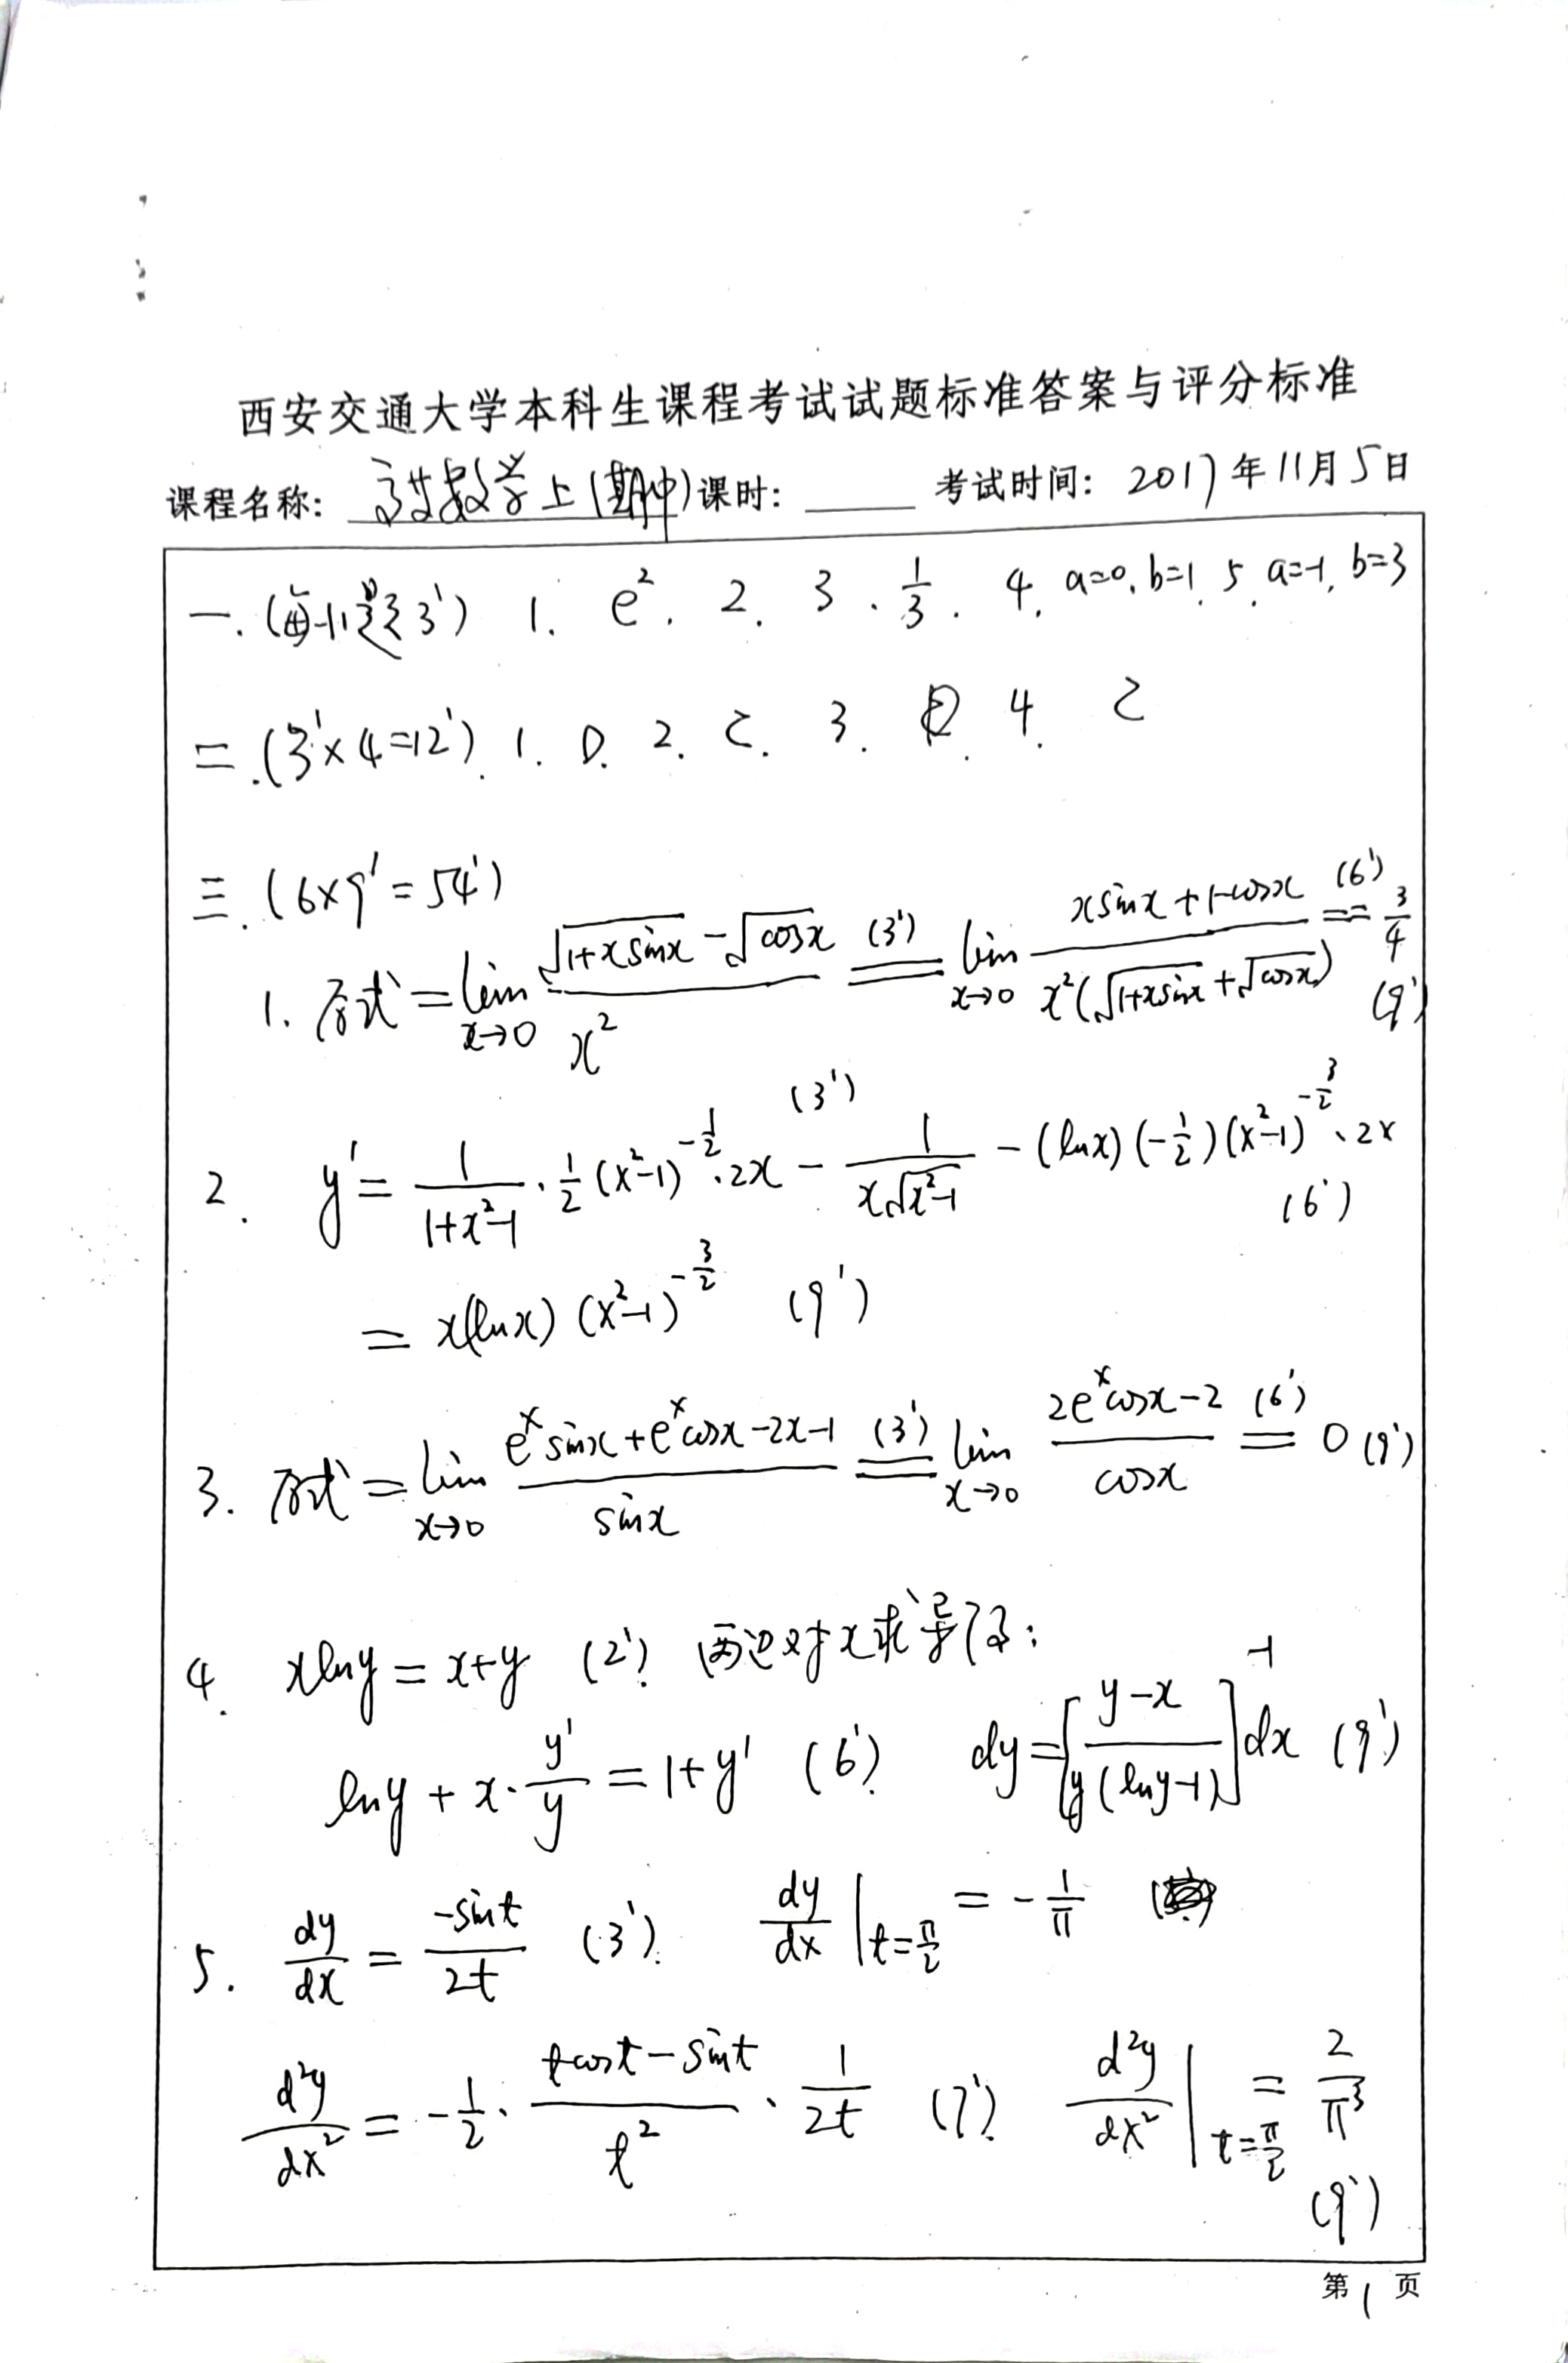 西安交通大学本科生课程考试试题标准答案与评分标准
课程名称: 高等数学上(期中) 课时: 考试时间: 2017年11月5日
一.(每小题3') 1. e². 2. 3. 1/3. 4. a=0, b=1. 5. a=-1, b=3
二.(3'×4=12'). 1. D. 2. C. 3. D. 4. C
三.(6×9'=54')
1. 原式=lim_{x→0} (√(1+xsinx)-√(cosx))/x² (3')== lim_{x→0} (xsinx+1-cosx)/(x²(√(1+xsinx)+√(cosx))) (6')== 3/4 (9')
2. y'=1/(1+x²-1)·1/2(x²-1)^{-1/2}·2x (3') - 1/(x√(x²-1)) - (lnx)(-1/2)(x²-1)^{-3/2}·2x (6')
= x(lnx)(x²-1)^{-3/2} (9')
3. 原式=lim_{x→0} (e^x sinx+e^x cosx-2x-1)/sinx (3')== lim_{x→0} (2e^x cosx-2)/cosx (6')== 0 (9')
4. xlny=x+y (2'). 两边对x求导得:
lny+x·y'/y=1+y' (6'). dy=[(y-x)/(y(lny-1))]^{-1}dx (9')
5. dy/dx=-sint/2t (3'). dy/dx|_{t=π/2}=-1/π
d²y/dx²=-1/2·(tcost-sint)/t²·1/2t (7'). d²y/dx²|_{t=π/2}=2/π³
(9')
第1页